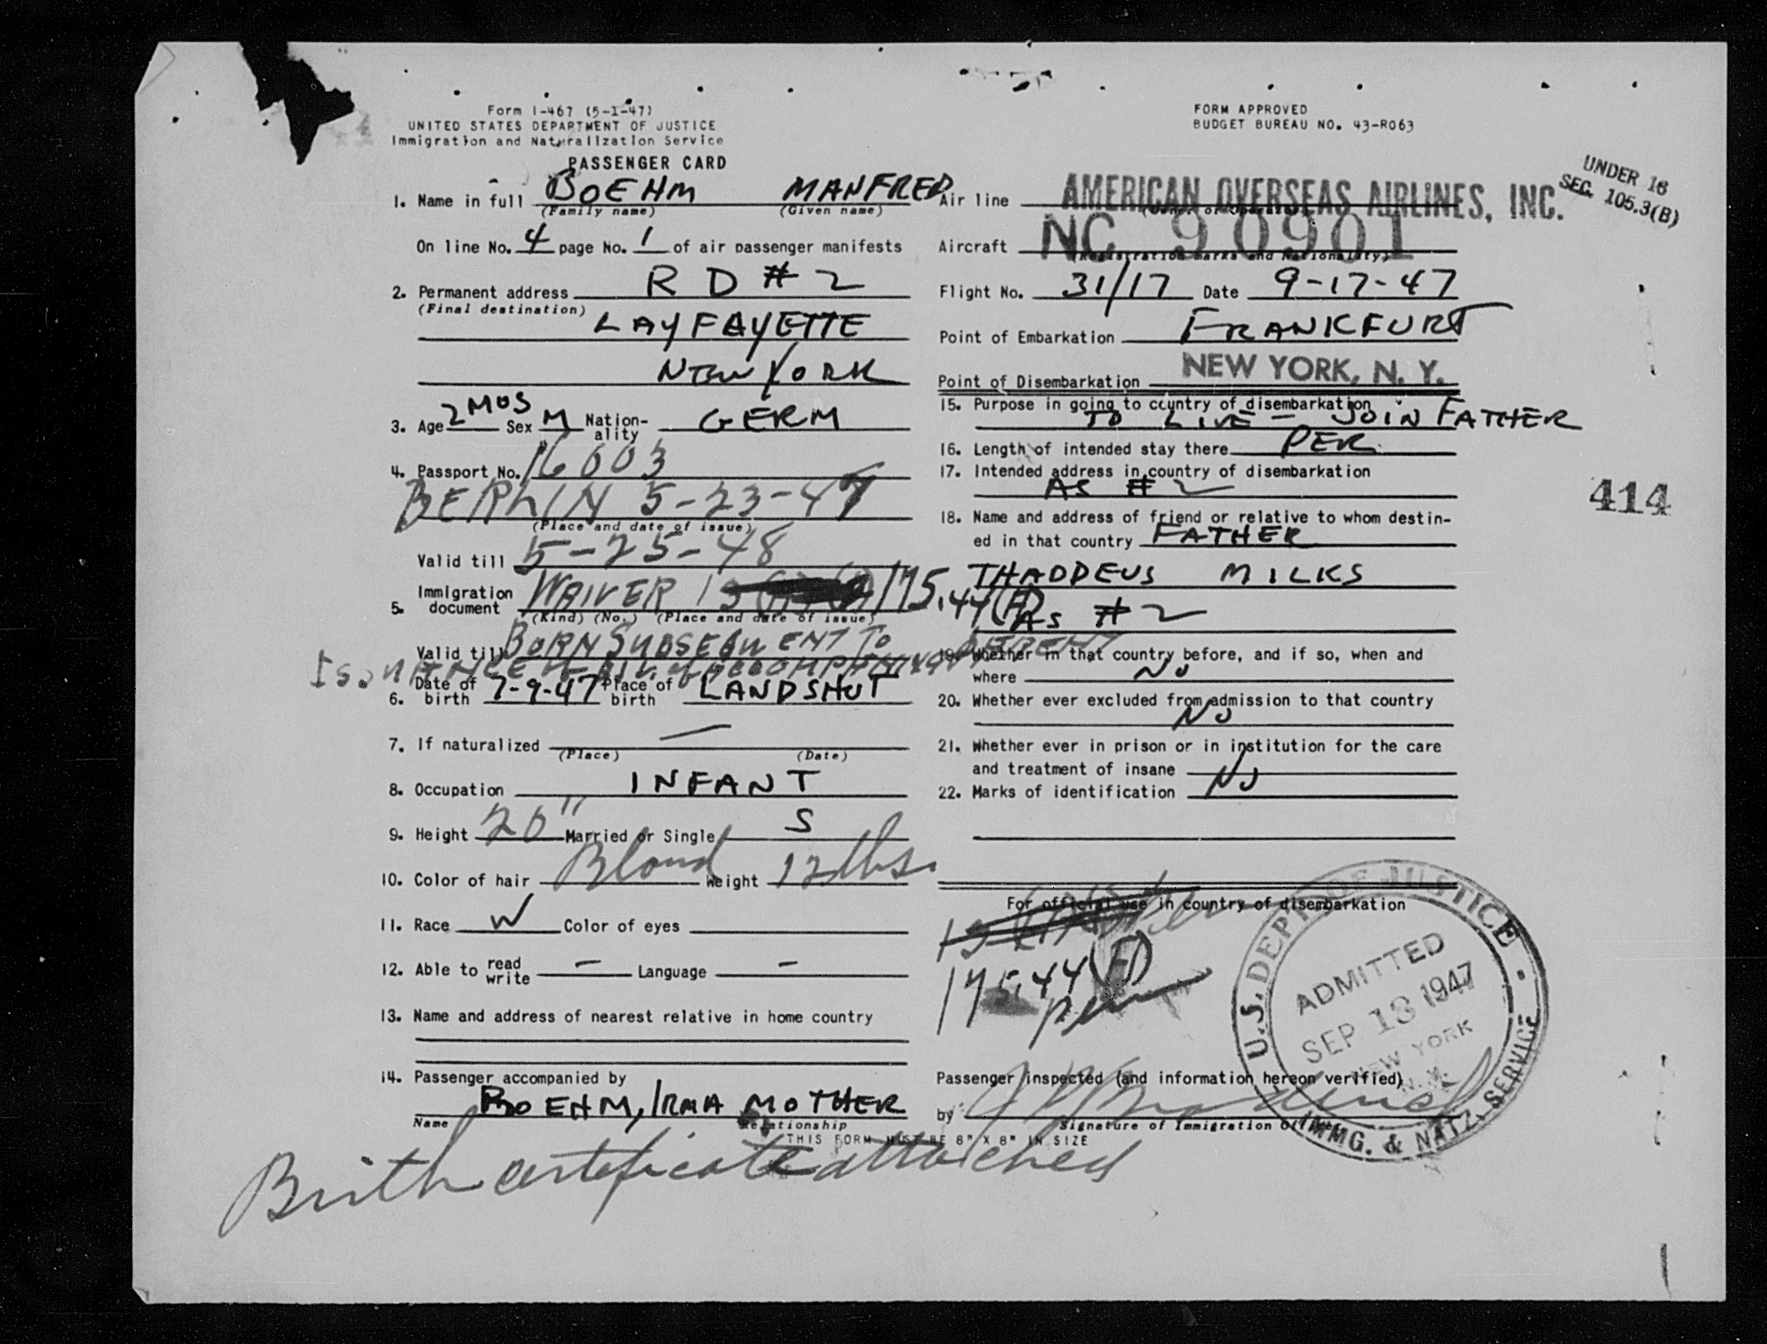 Form I-467 (5-1-47)
UNITED STATES DEPARTMENT OF JUSTICE
Immigration and Naturalization Service
PASSENGER CARD
FORM APPROVED
BUDGET BUREAU NO. 43-R063
UNDER 16
SEC. 105.3(B)
1. Name in full BOEHM MANFRED
(Family name) (Given name)
On line No. 4 page No. 1 of air passenger manifests
2. Permanent address R D # 2
(Final destination)
LAYFAYETTE
NEW YORK
3. Age 2 MOS Sex M Nation-ality GERM
4. Passport No. 16003
BERLIN 5-23-47
(Place and date of issue)
Valid till 5-25-48
5. Immigration document WAIVER 175.44(F)
(Kind) (No.) (Place and date of issue)
Valid till BORN SUBSEQUENT TO
ISSUANCE OF ACCOMPANYING PARENT
6. Date of birth 7-9-47 Place of birth LANDSHUT
7. If naturalized —
(Place) (Date)
8. Occupation INFANT
9. Height 20" Married or Single S
10. Color of hair Blond Weight 12 lbs.
11. Race W Color of eyes
12. Able to read write – Language –
13. Name and address of nearest relative in home country
14. Passenger accompanied by
BOEHM, IRMA MOTHER
Name Relationship
THIS FORM MUST BE 8" X 8" IN SIZE
Birth certificate attached
Air line AMERICAN OVERSEAS AIRLINES, INC.
(Owner or Operator)
Aircraft NC 90901
(Registration marks and Nationality)
Flight No. 31/17 Date 9-17-47
Point of Embarkation FRANKFURT
Point of Disembarkation NEW YORK, N. Y.
15. Purpose in going to country of disembarkation
TO LIVE – JOIN FATHER
16. Length of intended stay there PER.
17. Intended address in country of disembarkation
AS # 2
18. Name and address of friend or relative to whom destin-
ed in that country FATHER
THADDEUS MILKS
AS # 2
19. Whether in that country before, and if so, when and
where NO
20. Whether ever excluded from admission to that country
NO
21. Whether ever in prison or in institution for the care
and treatment of insane NO
22. Marks of identification
For official use in country of disembarkation
175.44(F)
per
Passenger inspected (and information hereon verified)
by
Signature of Immigration Officer
414
U.S. DEPT. OF JUSTICE - IMMG. & NATZ. SERVICE
ADMITTED
SEP 18 1947
NEW YORK
N.Y.